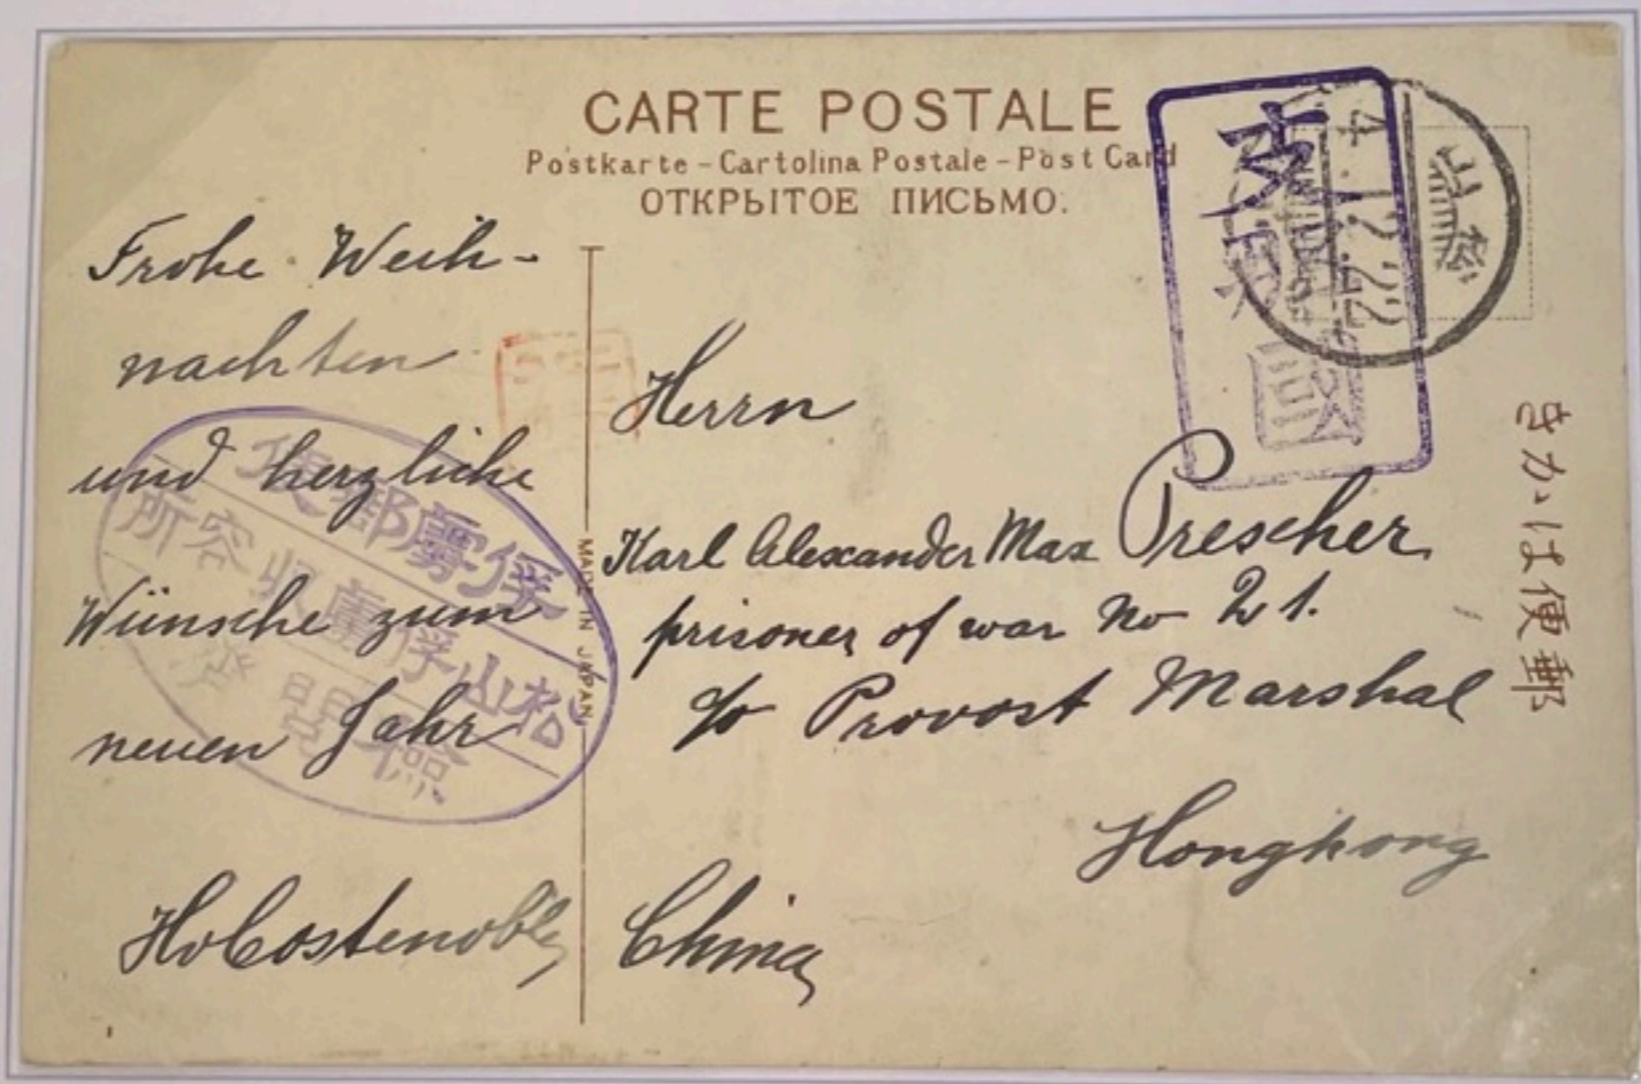 CARTE POSTALE
Postkarte – Cartolina Postale – Post Card
ОТКРЫТОЕ ПИСЬМО.
支那國
松山
4.12.22
きかは便郵
Frohe Weih-
nachten
und herzliche
Wünsche zum
neuen Jahr
俘虜郵便
松山俘虜収容所
検閲濟
MADE IN JAPAN
Herrn
Karl Alexander Max Prescher
prisoner of war No 21.
c/o Provost Marshal
Hongkong
China